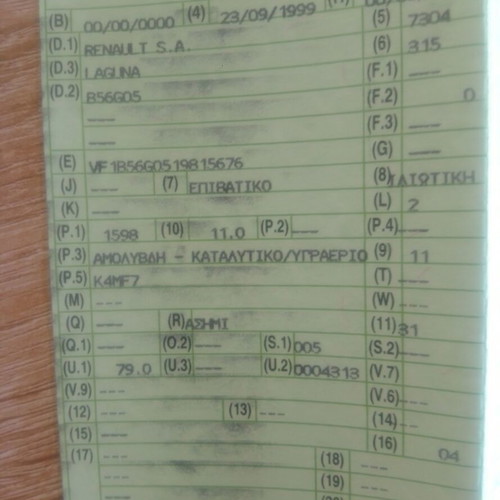 (B) 00/00/0000 (4) 23/09/1999
(5) 7304
(D.1) RENAULT S.A. (6) 315
(D.3) LAGUNA (F.1) ---
(D.2) B56G05 (F.2) 0
--- (F.3) ---
--- (G) ---
(E) VF1B56G0519815676
(J) --- (7) ΕΠΙΒΑΤΙΚΟ (8) ΙΔΙΩΤΙΚΗ
(K) --- (L) 2
(P.1) 1598 (10) 11.0 (P.2) --- (P.4) ---
(P.3) ΑΜΟΛΥΒΔΗ - ΚΑΤΑΛΥΤΙΚΟ/ΥΓΡΑΕΡΙΟ (9) 11
(P.5) K4MF7 (T) ---
(M) --- (W) ---
(Q) --- (R) ΑΣΗΜΙ (11) 31
(Q.1) --- (O.2) --- (S.1) 005 (S.2) ---
(U.1) 79.0 (U.3) --- (U.2) 0004313 (V.7)
(V.9) --- (V.6) ---
(12) --- (13) --- (14) ---
(15) --- (16) 04
(17) --- (18) ---
--- (19) ---